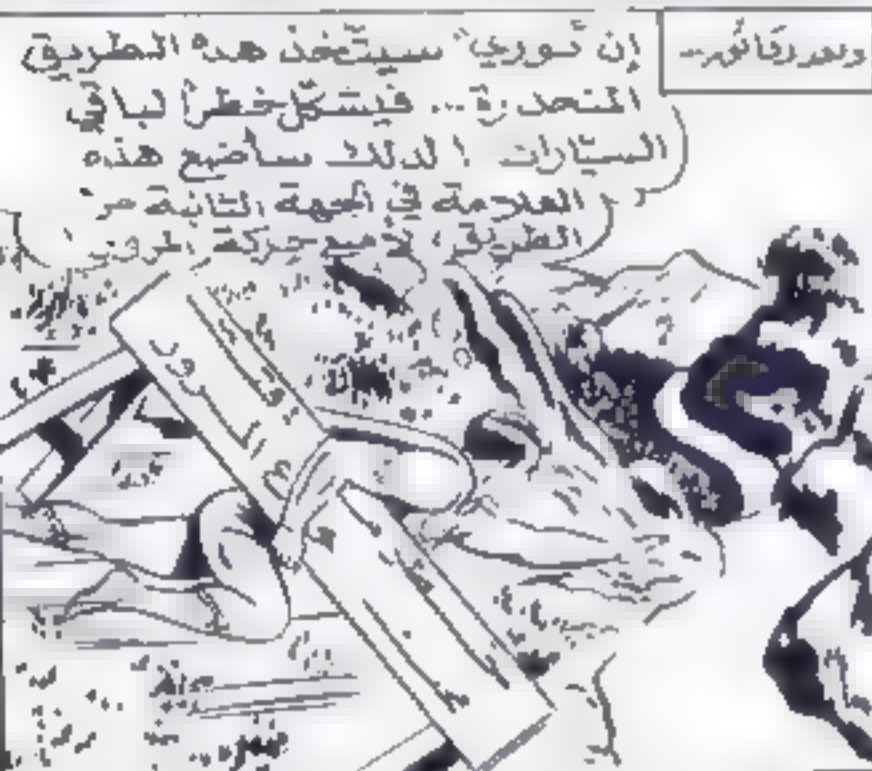 وبعد دقائق...
إن "نوري" سيتخذ هذه الطريق
المنحدرة... فيشكّل خطراً لباقي
السيّارات ! لذلك سأضع هذه
العلامة في الجهة الثانية من
الطريق، لأمنع حركة المرور
المرور